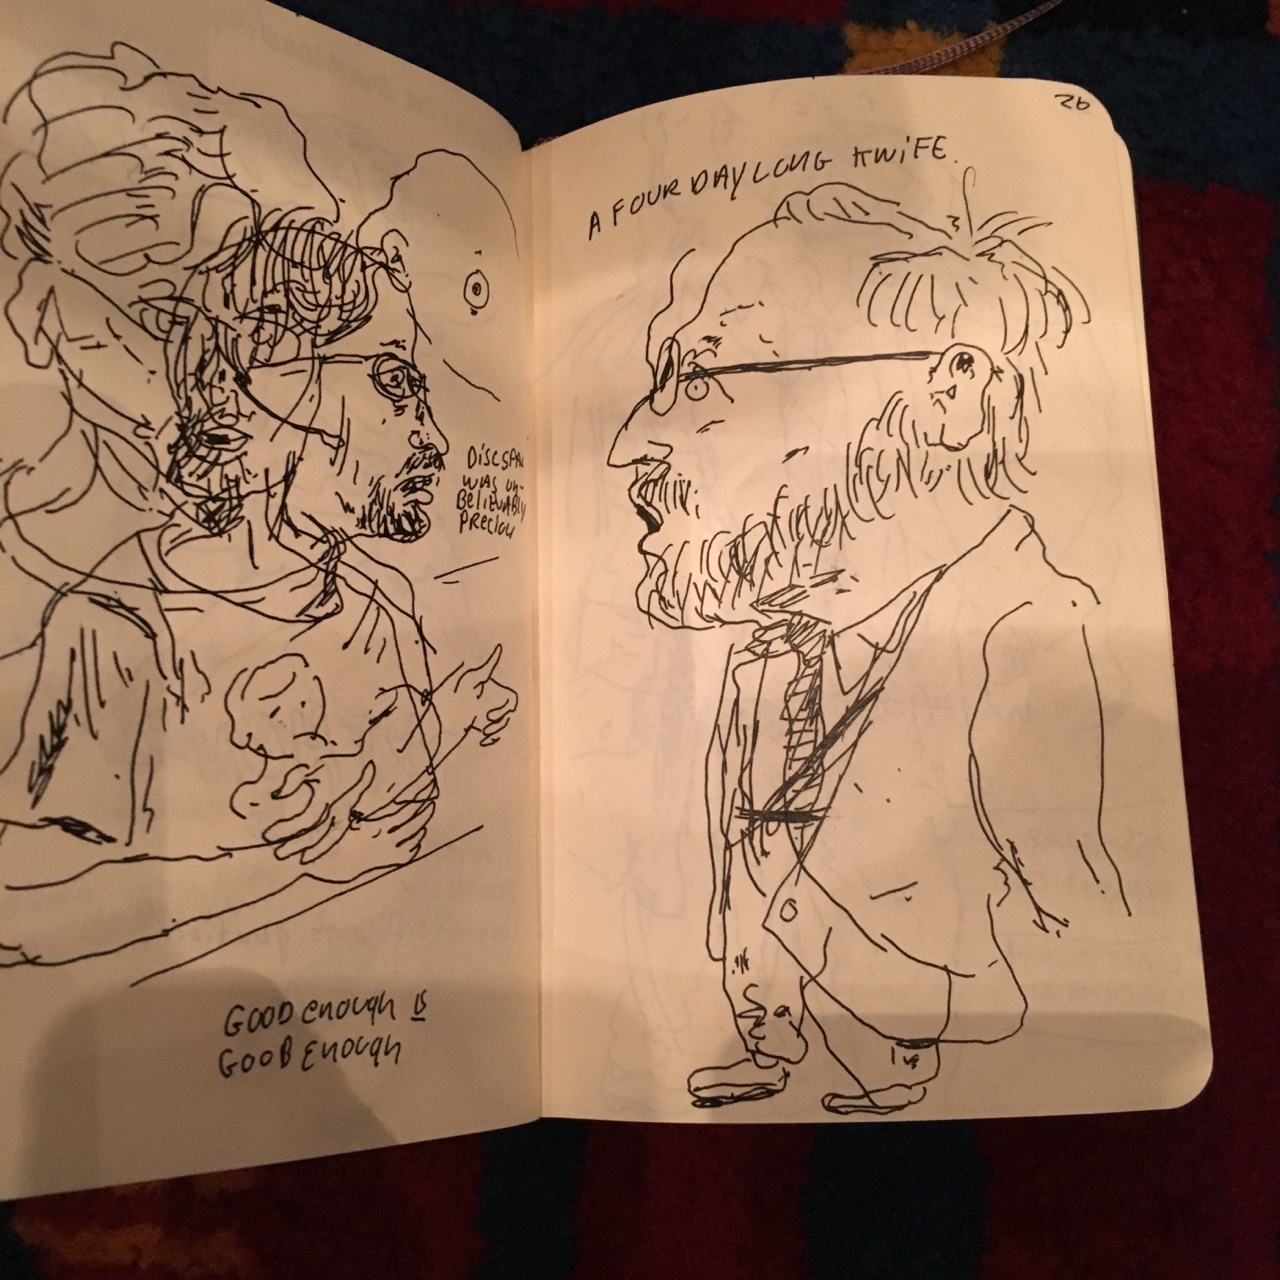 DiSCSPA
WAS UN-
BELiEVABLY
PRECiOU
GOOD enough is
GOOD Enough
26
A FOUR DAY LONG KNiFE.